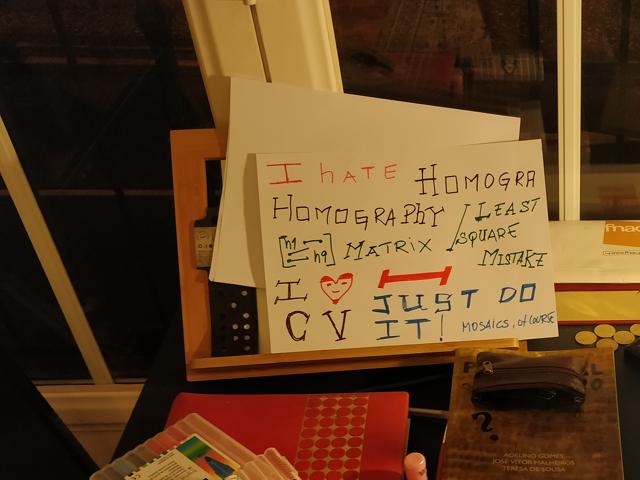 I hATE HOMOGRA
HOMOGRAPhY
[h1 h9] MATRIX
LEAST
SQUARE
MISTAKE
I
CV
JUST DO
IT!
MOSAICS, of COURSE
fnac
?
ADELINO GOMES
JOSÉ VITOR MALHEIROS
TERESA DE SOUSA